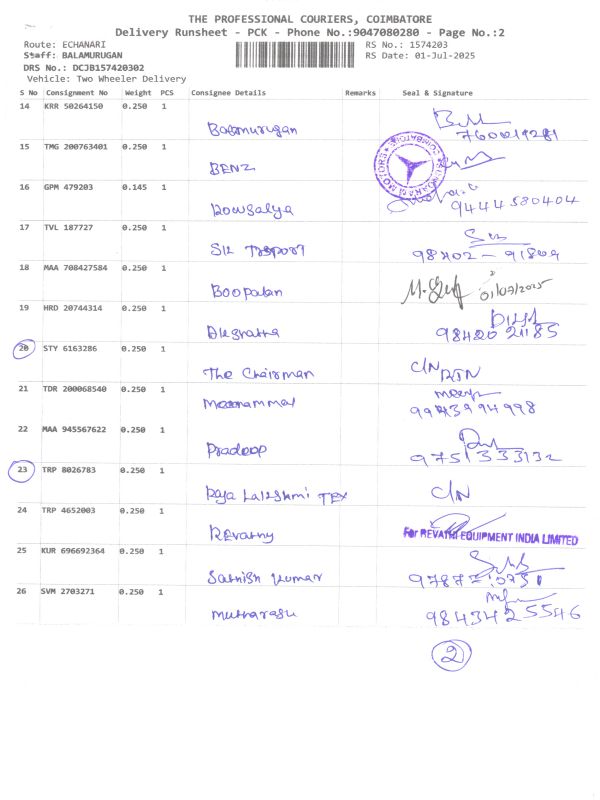 THE PROFESSIONAL COURIERS, COIMBATORE
Delivery Runsheet - PCK - Phone No.:9047080280 - Page No.:2
Route: ECHANARI RS No.: 1574203
Staff: BALAMURUGAN RS Date: 01-Jul-2025
DRS No.: DCJB157420302
Vehicle: Two Wheeler Delivery
S No Consignment No Weight PCS Consignee Details Remarks Seal & Signature
14 KRR 50264150 0.250 1
Balamurugan 7600019281
15 TMG 200763401 0.250 1
BENZ
16 GPM 479203 0.145 1
Kowsalya 9444580404
17 TVL 187727 0.250 1
SIL 98402-91809
18 MAA 708427584 0.250 1
Boopalan 01/07/2025
19 HRD 20744314 0.250 1
9842021185
20 STY 6163286 0.250 1
The Chairman C/N RTN
21 TDR 200068540 0.250 1
Meenammal 9943994998
22 MAA 945567622 0.250 1
Pradeep 9751333132
23 TRP 8026783 0.250 1
Raja Lakshmi TEX C/N
24 TRP 4652003 0.250 1
REvathy For REVATHI EQUIPMENT INDIA LIMITED
25 KUR 696692364 0.250 1
Sathish Kumar
26 SVM 2703271 0.250 1
Mutharasu 9843425546
2